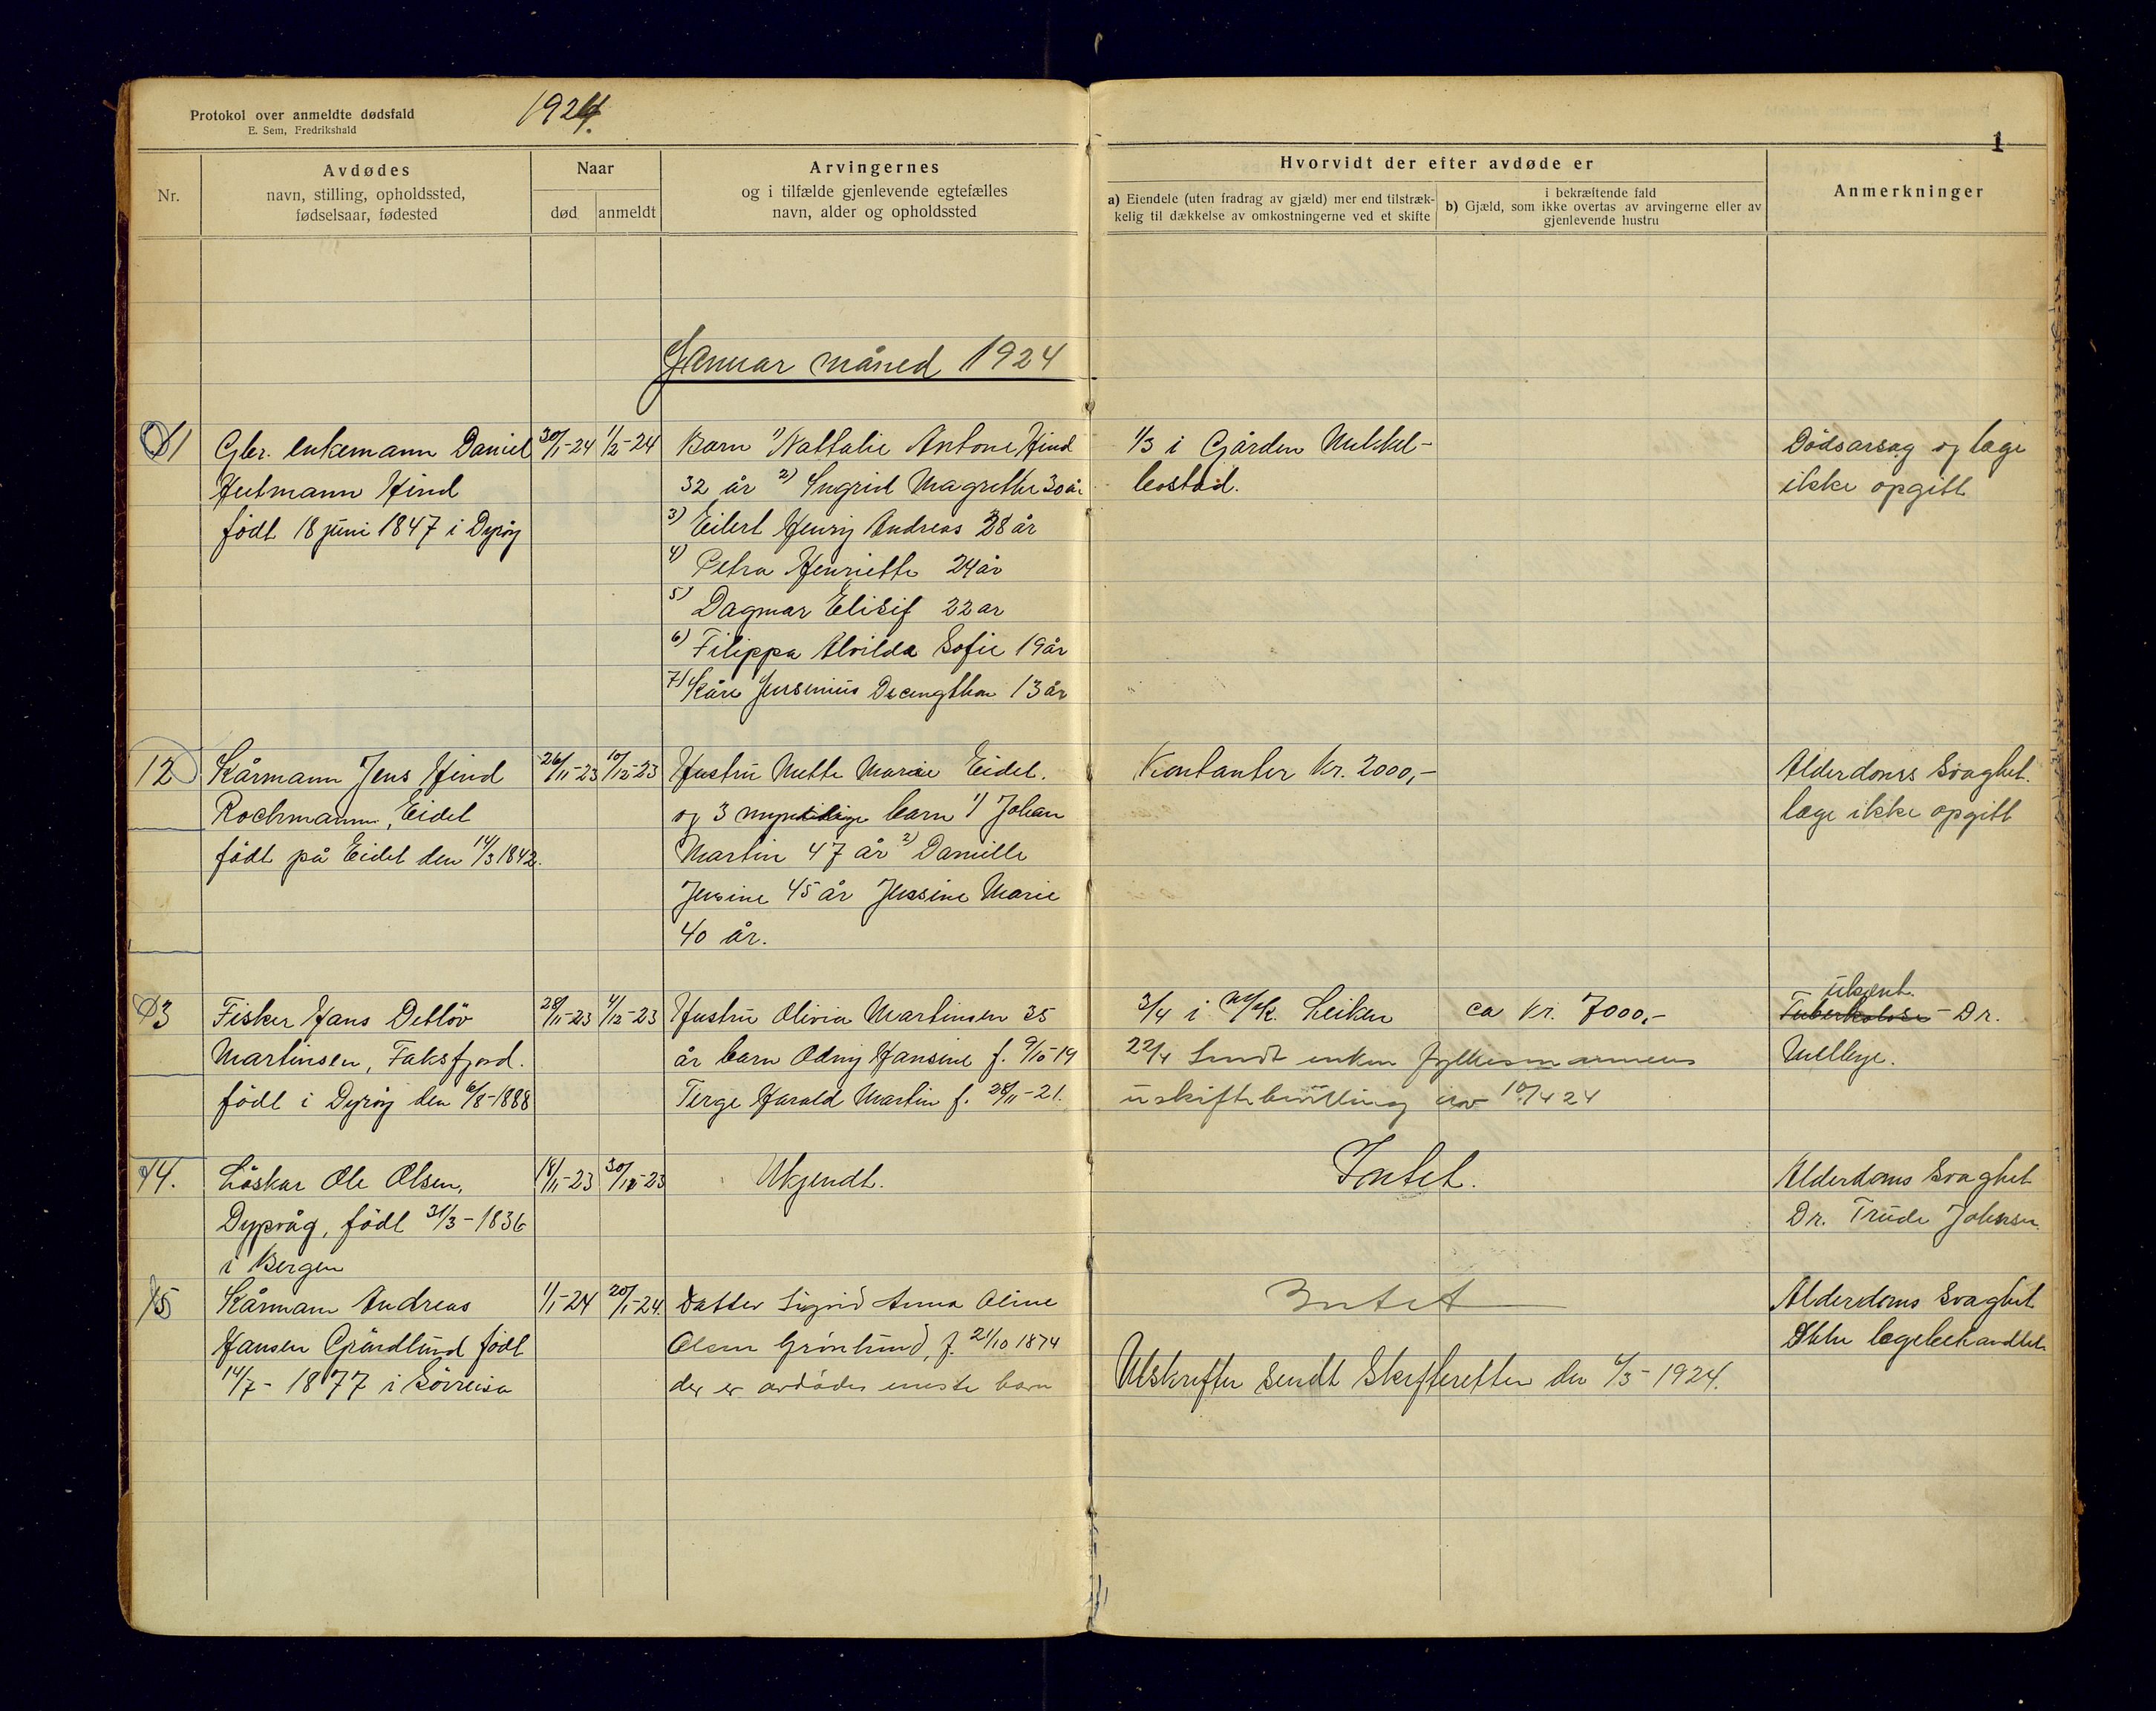 Protokol over anmeldte dødsfald
E. Sem, Fredrikshald
1924.
1
Nr.
Avdødes
navn, stilling, opholdssted,
fødselsaar, fødested
Naar
død
anmeldt
Arvingernes
og i tilfælde gjenlevende egtefælles
navn, alder og opholdssted
Hvorvidt der efter avdøde er
a) Eiendele (uten fradrag av gjæld) mer end tilstræk-
kelig til dækkelse av omkostningerne ved et skifte
i bekræftende fald
b) Gjæld, som ikke overtas av arvingerne eller av
gjenlevende hustru
Anmerkninger
Januar måned 1924
1
Gbr. enkemann Daniel
Hind
født 18 juni 1847 i Dyrøy
30/1-24
1/2-24
Barn 1) Nathalie Antone Hind
32 år 2) Ingrid Magrethe 30 år
3) Eilert Henrij Andreas 28 år
4) Petra Henriette 24 år
5) Dagmar Elisif 22 ar
6) Filippa Alvilda Sofie 19 år
7) Kåre Jensenius 13 år
1/3 i Gården Mikkel-
bostad.
Dødsarsag og læge
ikke opgitt
12
Kårmann Jens Hind
Rochmann, Eidet
født på Eidet den 14/3 1842.
26/11-23
10/12-23
Hustru Mette Marie Eidet.
og 3 myndige barn 1) Johan
Martin 47 år 2) Danille
Jensine 45 år Jessine Marie
40 år.
Kontanter Kr. 2000,-
Alderdoms svaghet.
læge ikke opgitt
3
Fisker Hans Detløv
Martinsen, Faksfjord.
født i Dyrøy den 6/8-1888
28/11-23
4/12-23
Hustru Olivia Martinsen 35
år barn Odny Hansine f. 9/10-19
Terge Harald Martin f. 28/11-21.
3/4 i M/K. Leiken
ca Kr. 7000,-
22/4 Sendt enken fylkesmannens
uskiftebevilling av 10/4 24
ukjent.
Tuberkolose - Dr.
Mellbye.
14.
Låskar Ole Olsen,
Dypvåg, født 31/3-1836
i Bergen
18/11-23
30/12-23
Ukjendt.
Intet.
Alderdoms svaghet
Dr. Trude Johnsen.
15
Kårmann Andreas
Hansen Grøndlund født
14/7- 1877 i Sørreisa
1/1-24
20/1-24.
Datter Sigrid Anna Oline
Olsen Grønlund, f. 21/10 1874
der er avdødes eneste barn
Intet
Alderdoms svaghet
Ikke lægebehandlet
Utskrifter sendt Skifteretten den 6/3-1924.